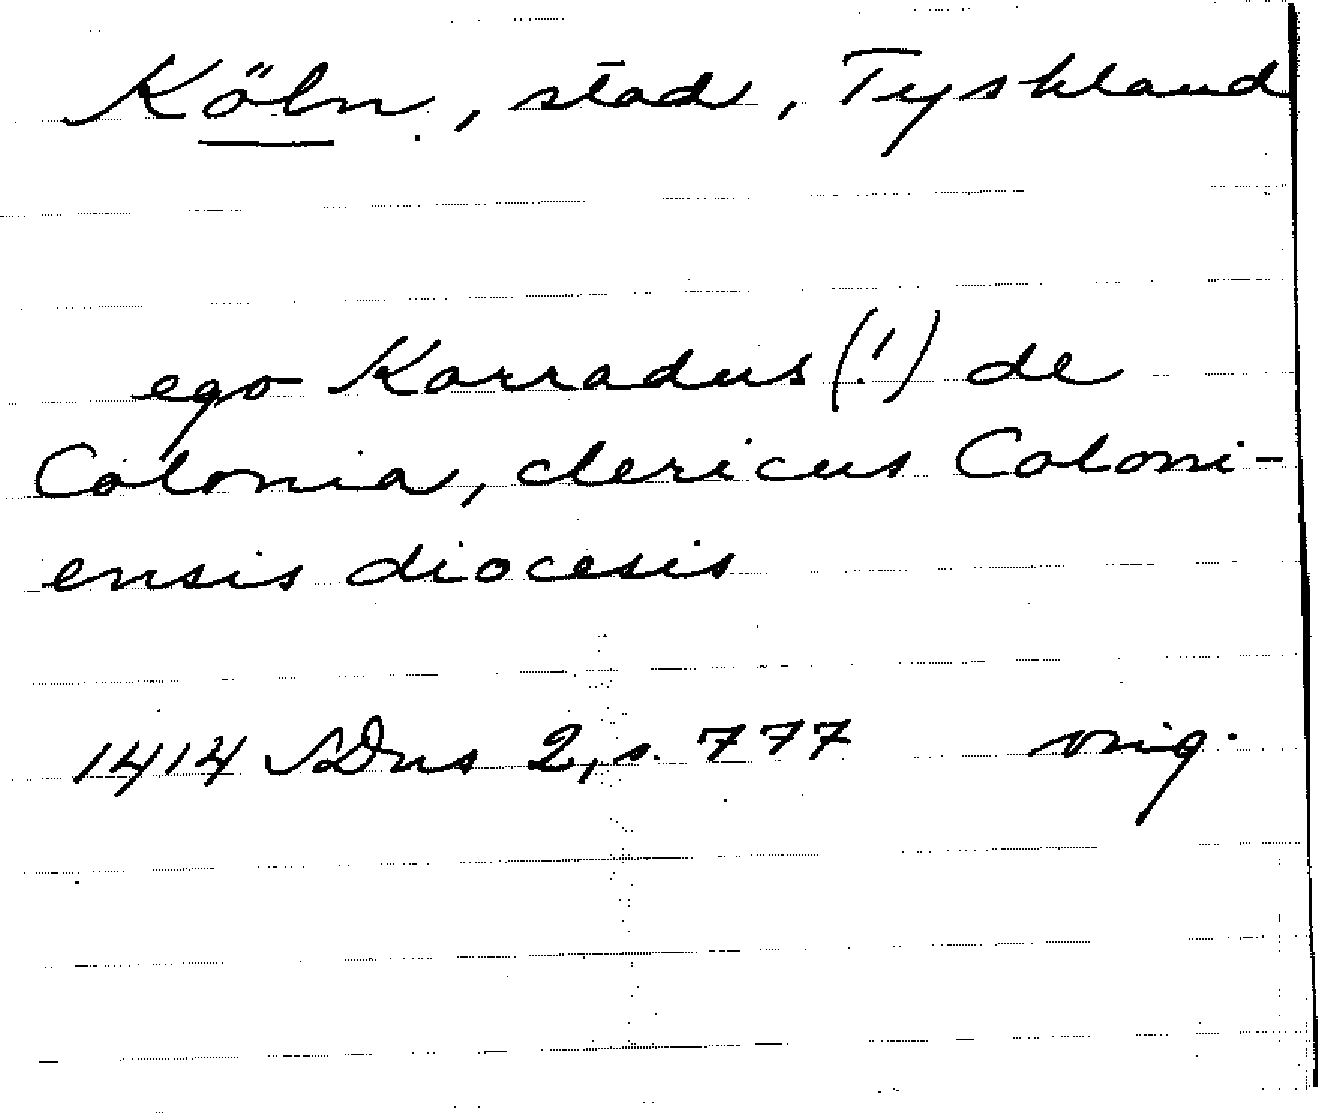 Köln, stad, Tyskland
ego Karradus (!) de
Colonia, clericus Coloni-
ensis diocesis
1414 SDns 2, s. 777 orig.